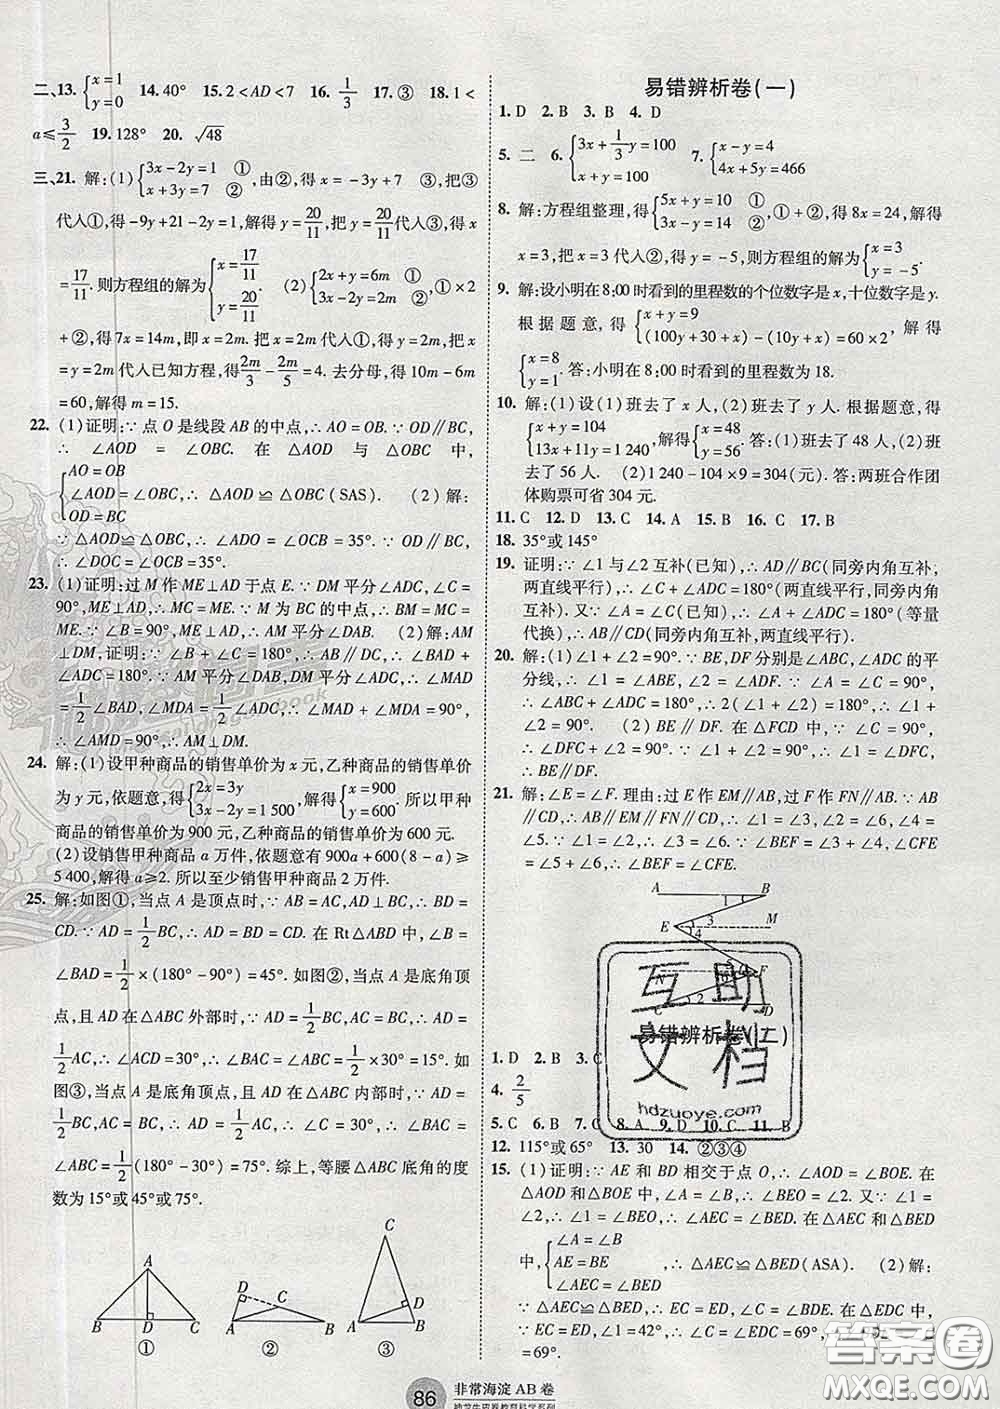 二、13. {x=1 y=0 14. 40° 15. 2<AD<7 16. 1/3 17. ③ 18. 1<
a≤3/2 19. 128° 20. √48
三、21. 解:(1){3x-2y=1 ① x+3y=7 ②,由②,得 x=-3y+7 ③,把③
代人①,得-9y+21-2y=1,解得 y=20/11,把 y=20/11代人③,得 x
=17/11. 则方程组的解为{x=17/11 y=20/11 (2){2x+y=6m ① 3x-2y=2m ②,①×2
+②,得7x=14m,即x=2m.把x=2m代人①,得y=2m,把x
=2m,y=2m 代人已知方程,得2m/3-2m/5=4. 去分母,得 10m-6m
=60,解得 m=15.
22. (1)证明:∵点O是线段AB的中点,∴AO=OB.∵OD∥BC,
∴∠AOD=∠OBC. 在△AOD与△OBC中,
{AO=OB ∠AOD=∠OBC OD=BC,∴△AOD≌△OBC(SAS). (2)解:
∵△AOD≌△OBC,∴∠ADO=∠OCB=35°.∵OD∥BC,
∴∠DOC=∠OCB=35°.
23. (1)证明:过M作ME⊥AD于点E.∵DM平分∠ADC,∠C=
90°,ME⊥AD,∴MC=ME.∵M为BC的中点,∴BM=MC=
ME.∵∠B=90°,ME⊥AD,∴AM平分∠DAB. (2)解:AM
⊥DM.证明:∵∠B+∠C=180°,∴AB∥CD,∴∠BAD+
∠ADC=180°.∵AM平分∠DAB,DM平分∠ADC,∴∠MAD
=1/2∠BAD,∠MDA=1/2∠ADC,∴∠MAD+∠MDA=90°,
∴∠AMD=90°,∴AM⊥DM.
24. 解:(1)设甲种商品的销售单价为x元,乙种商品的销售单价
为y元,依题意,得{2x=3y 3x-2y=1 500,解得{x=900 y=600. 所以甲种
商品的销售单价为900元,乙种商品的销售单价为600元.
(2)设销售甲种商品a万件,依题意有900a+600(8-a)≥
5 400,解得a≥2.所以至少销售甲种商品2万件.
25. 解:如图①,当点A是顶点时,∵AB=AC,AD⊥BC,∴BD=
CD.∵AD=1/2BC,∴AD=BD=CD.在Rt△ABD中,∠B=
∠BAD=1/2×(180°-90°)=45°.如图②,当点A是底角顶
点,且AD在△ABC外部时,∵AD=1/2BC,AC=BC,∴AD=
1/2AC,∴∠ACD=30°,∴∠BAC=∠ABC=1/2×30°=15°.如
图③,当点A是底角顶点,且AD在△ABC内部时,∵AD=
1/2BC,AC=BC,∴AD=1/2AC,∴∠C=30°,∴∠BAC=∠ABC
=1/2(180°-30°)=75°.综上,等腰△ABC底角的度
数为15°或45°或75°.
A B D C
①
D C A B
②
C D A B
③
易错辨析卷(一)
1. D 2. B 3. B 4. D
5. 二 6. {3x+1/3y=100 x+y=100 7. {x-y=4 4x+5y=466
8. 解:方程组整理,得{5x+y=10 ① 3x-y=14 ②,①+②,得8x=24,解得
x=3,把x=3代人②,得y=-5,则方程组的解为{x=3 y=-5.
9. 解:设小明在8:00时看到的里程数的个位数字是x,十位数字是y.
根据题意,得{x+y=9 (100y+30+x)-(10y+x)=60×2,解得
{x=8 y=1. 答:小明在8:00时看到的里程数为18.
10. 解:(1)设(1)班去了x人,(2)班去了y人.根据题意,得
{x+y=104 13x+11y=1 240,解得{x=48 y=56. 答:(1)班去了48人,(2)班
去了56人. (2)1 240-104×9=304(元).答:两班合作团
体购票可省304元.
11. C 12. D 13. C 14. A 15. B 16. C 17. B
18. 35°或145°
19. 证明:∵∠1与∠2互补(已知),∴AD∥BC(同旁内角互补,
两直线平行),∴∠A+∠B=180°(两直线平行,同旁内角
互补).又∵∠B=∠C(已知),∴∠A+∠C=180°(等量
代换),∴AB∥CD(同旁内角互补,两直线平行).
20. 解:(1)∠1+∠2=90°.∵BE,DF分别是∠ABC,∠ADC的平
分线,∴∠1=∠ABE,∠2=∠ADF.∵∠A=∠C=90°,
∴∠ABC+∠ADC=180°,∴2(∠1+∠2)=180°,
∴∠1+∠2=90°. (2)BE∥DF.在△FCD中,∵∠C=90°,
∴∠DFC+∠2=90°.∵∠1+∠2=90°,∴∠1=∠DFC,
∴BE∥DF.
21. 解:∠E=∠F.理由:过E作EM∥AB,过F作FN∥AB.∵AB
∥CD,∴AB∥EM∥FN∥CD,∴∠1=∠3,∠2=∠5,∠4=
∠5.∵∠1=∠2,∴∠1+∠5=∠BEF=∠3+∠4,∠CFE=∠2
+∠5,∴∠BEF=∠CFE.
A B 1 3 M E 4 F 2 C D
易错辨析卷(二)
1. D 2. B 3. C
4. 2/5
5. C 6. B 7. C 8. A 9. D 10. C 11. B
12. 115°或65° 13. 30 14. ②③④
15. (1)证明:∵AE和BD相交于点O,∴∠AOD=∠BOE.在
△AOD和△BOE中,∠A=∠B,∴∠BEO=∠2.又∵∠1=
∠2,∴∠1=∠BEO,∴∠AEC=∠BED.在△AEC和△BED
中,{∠A=∠B AE=BE ∠AEC=∠BED,∴△AEC≌△BED(ASA). (2)解:
∵△AEC≌△BED,∴EC=ED,∠C=∠BDE.在△EDC中,
∵EC=ED,∠1=42°,∴∠C=∠EDC=69°,∴∠BDE=∠C
=69°.
互助
文档
hdzuoye.com
答案圈
MXQE.COM
86 非常海淀AB卷